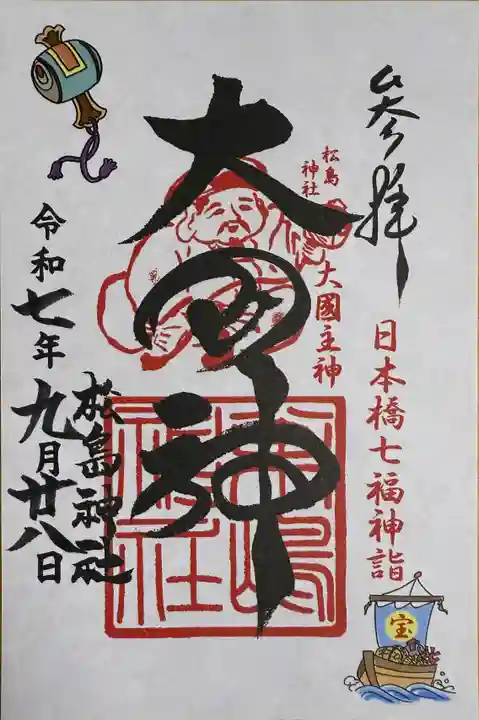 参拝
日本橋七福神詣
松島
神社
大國主神
大国神
松島神社
令和七年九月廿八日
宝